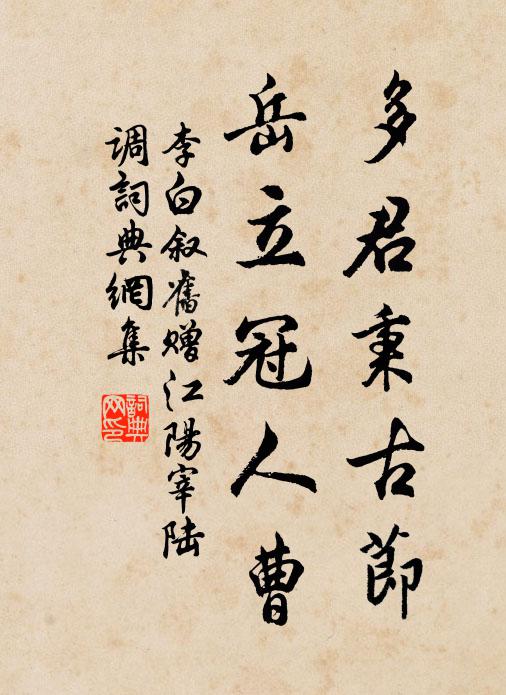 多君秉古節
岳立冠人曹
李白叙舊赠江陽宰陆
调詞典網集
詞典
网印